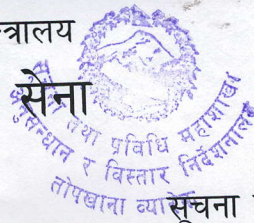 न्त्रालय
सेना
तथा प्रविधि महाशाखा
अनुसन्धान र विस्तार निर्देशनालय
तोपखाना व्या
सूचना